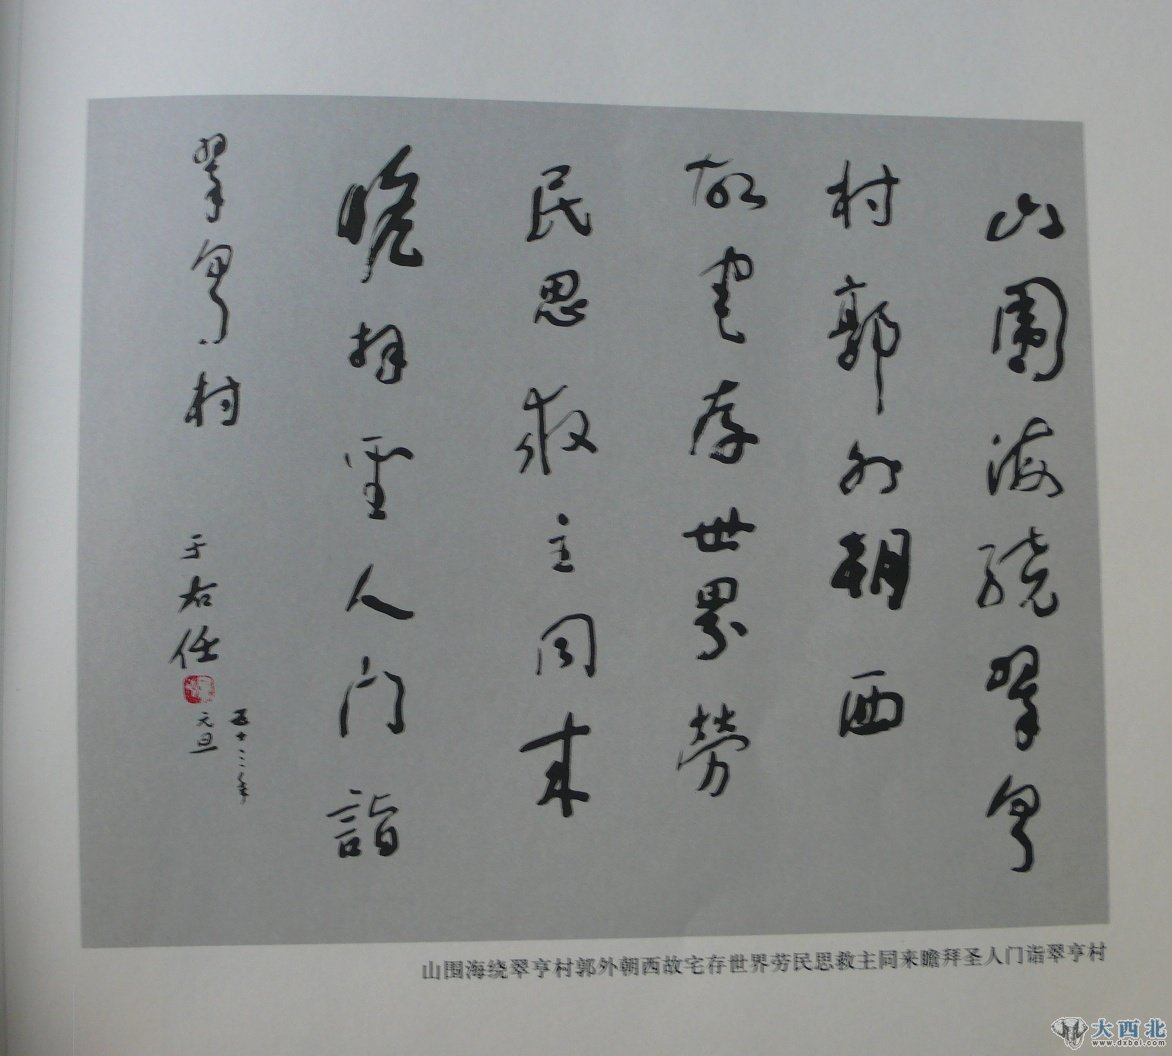 山圍海繞翠亨
村郭外朝西
故宅存世界勞
民思救主同來
瞻拜聖人門詣
翠亨村
于右任
五十三年
元旦
山围海绕翠亨村郭外朝西故宅存世界劳民思救主同来瞻拜圣人门诣翠亨村
大西北
www.dxbei.com